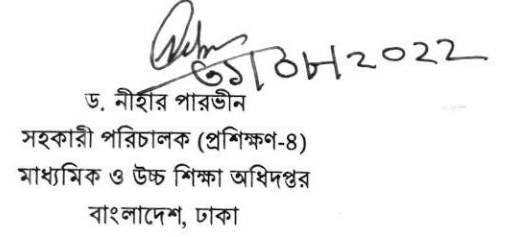 ৩১/০৮/২০২২
ড. নীহার পারভীন
সহকারী পরিচালক (প্রশিক্ষণ-৪)
মাধ্যমিক ও উচ্চ শিক্ষা অধিদপ্তর
বাংলাদেশ, ঢাকা